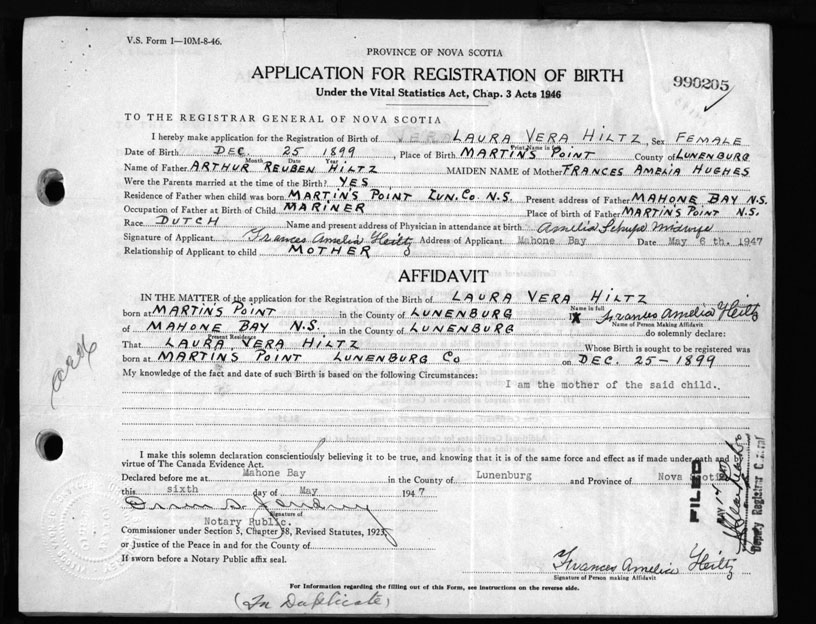 V.S. Form 1—10M-8-46.
PROVINCE OF NOVA SCOTIA
APPLICATION FOR REGISTRATION OF BIRTH
990205
Under the Vital Statistics Act, Chap. 3 Acts 1946
TO THE REGISTRAR GENERAL OF NOVA SCOTIA
I hereby make application for the Registration of Birth of VERA LAURA VERA HILTZ, Sex FEMALE
Print Name in full
Date of Birth DEC. 25 1899, Place of Birth MARTINS POINT County of LUNENBURG
Month Date Year
Name of Father ARTHUR REUBEN HILTZ MAIDEN NAME of Mother FRANCES AMELIA HUGHES
Were the Parents married at the time of the Birth? YES
Residence of Father when child was born MARTINS POINT LUN. CO. N.S. Present address of Father MAHONE BAY N.S.
Occupation of Father at Birth of Child MARINER Place of birth of Father MARTINS POINT N.S.
Race DUTCH Name and present address of Physician in attendance at birth Amelia Midwife
Signature of Applicant Frances Amelia Heiltz Address of Applicant Mahone Bay Date May 6 th. 1947
Relationship of Applicant to child MOTHER
AFFIDAVIT
IN THE MATTER of the application for the Registration of the Birth of LAURA VERA HILTZ
Name in full
born at MARTINS POINT in the County of LUNENBURG I, Frances Amelia Heiltz
Name of Person Making Affidavit
of MAHONE BAY N.S. in the County of LUNENBURG do solemnly declare:
Present Residence
That LAURA VERA HILTZ Whose Birth is sought to be registered was
born at MARTINS POINT LUNENBURG CO on DEC. 25—1899
My knowledge of the fact and date of such Birth is based on the following Circumstances:
I am the mother of the said child.
I make this solemn declaration conscientiously believing it to be true, and knowing that it is of the same force and effect as if made under oath and
virtue of The Canada Evidence Act.
Declared before me at Mahone Bay in the County of Lunenburg and Province of Nova Scotia
this sixth day of May 1947
Signature of
Notary Public.
Commissioner under Section 3, Chapter 38, Revised Statutes, 1923,
or Justice of the Peace in and for the County of
If sworn before a Notary Public affix seal.
FILED
MAY
Deputy Registrar
Frances Amelia Heiltz
Signature of Person making Affidavit
For Information regarding the filling out of this Form, see instructions on the reverse side.
(In Duplicate)